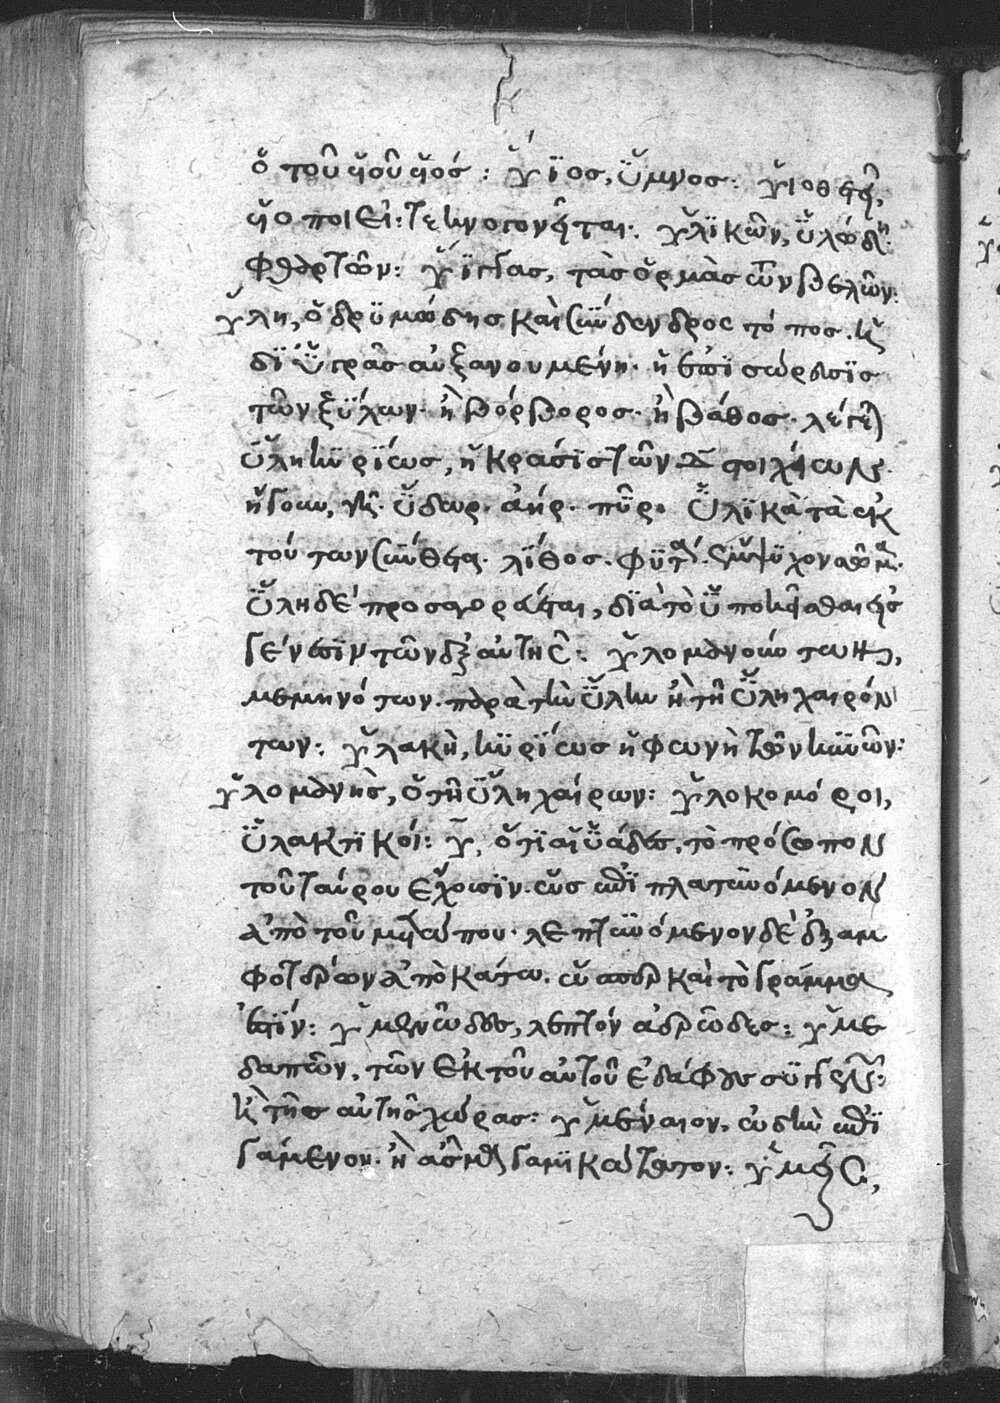 ὁ τοῦ υἱοῦ υἱός: ὕϊος, ὕμνος: υἱοθετεῖ,
υἱοποιεῖ: τεκνογονεῖται: ὑλικῶν, ὑλώδη.
φθαρτῶν: τὰς ὁρμὰς τῶν βελῶν:
ὕλη, ὁ δρυμώδης καὶ σύνδενδρος τόπος. καὶ
δι' ὑγρᾶς αὐξανουμένη. ἢ ἐπισώρευσις
τῶν ξύλων. ἢ βόρβορος. ἢ βάθος. λέγεται
ὕλη κυρίως, ἡ κρᾶσις τῶν δ στοιχείων.
ἤγουν, γῆ. ὕδωρ. ἀήρ. πῦρ. ὑλικὰ τὰ ἐκ
τούτων σύνθετα. λίθος. φυτά.
ὕλη δὲ προσαγορεύεται, διὰ τὸ ὑποκεῖσθαι εἰς
γένεσιν τῶν ἐξ αὐτῆς: ὑλομανούντων,
μεμηνότων. παρὰ τὴν ὕλην ἢ τῇ ὕλῃ χαιρόν
των: ὑλακὴ, κυρίως ἡ φωνὴ τῶν κυνῶν:
ὑλομανὴς, ὁ τῇ ὕλῃ χαίρων: ὑλοκομόροι,
ὑλακτικοί: ὅτι αἱ ὑάδες, τὸ πρόσωπον
τοῦ ταύρου ἔχουσιν. ὡς ἐπὶ πλατυνόμενον
ἀπὸ τοῦ μετώπου. λεπτυνόμενον δὲ ἐξ ἀμ
φοτέρων ἀπὸ κάτω. ὥσπερ καὶ τὸ γράμμα
ἐστίν: ὑμενῶδες, λεπτόν ἀδρῶδες: ὑμε
δαπῶν, τῶν ἐκ τοῦ αὐτοῦ ἐδάφους
καὶ τῆς αὐτῆς χώρας: ὑμέναιον, ᾠδὴν ἐπὶ
γάμενον. ἢ ᾆσμα γαμικώτατον: ὑμεῖς,